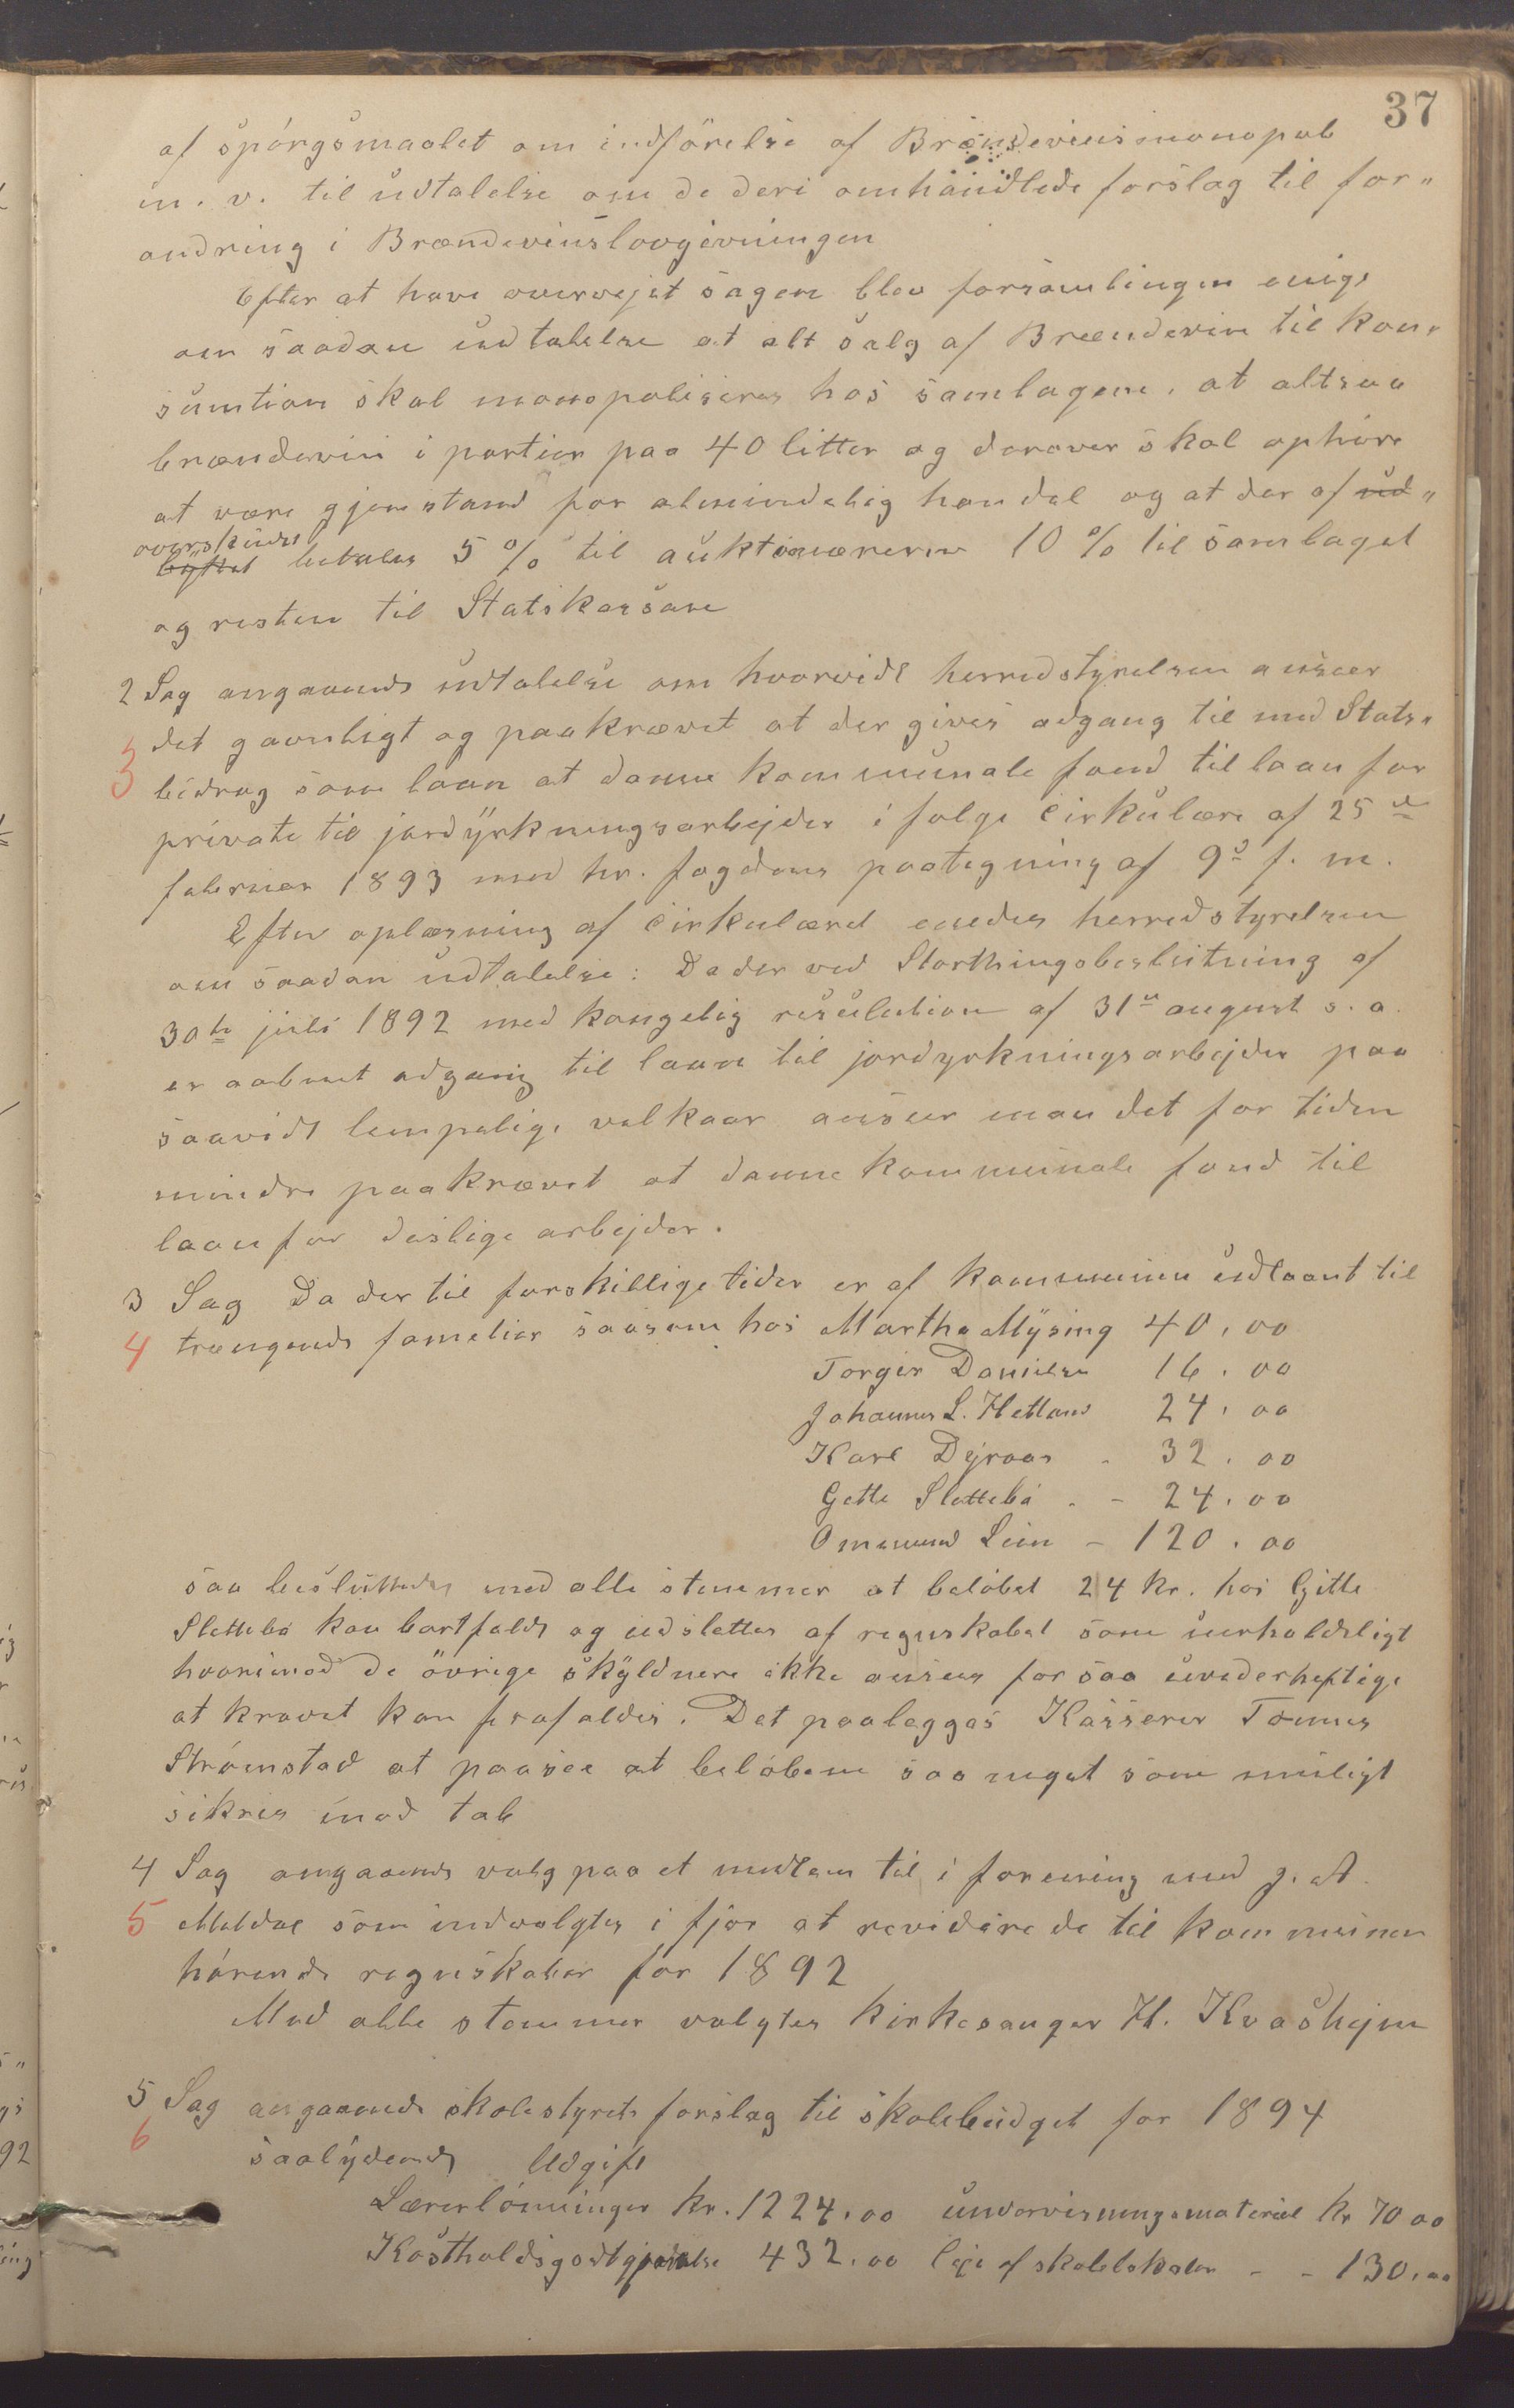 37
af spórgsmaalet om indförelse af Brændeviinsmonopol
m. v. til udtalelse om de deri omhandlede forslag til for„
andring i Brændevinslovgivningen
Efter at have overvejet sagen blev forsamlingen enige
om saadan udtalelse at alt salg af Brændevin til kon„
sumtion skal monopoliseres hos samlagene, at altsaa
brændevin i partier paa 40 litter og derover skal ophöre
at være gjenstand for almindelig handel og at der af ud„
overskudet
byttet betales 5 % til auktionærerne 10 % til samlaget
og resten til Statskassan
2 Sag angaaende udtalelse om hvorvidt herredstyrelsen anseer
3 det gavnligt og paakrævet at der gives adgang til med Stats„
bidrag som laan at danne kommunale fond til laan for
private til jordyrkningsarbejder i følge cirkulære af 25de
februar 1893 med hr. fogdens paategning af 9de f. m.
Efter oplæsning af cirkulæret enedes herredstyrelsen
om saadan udtalelse: Da der ved Storthingsbeslutning af
30te juli 1892 med kongelig resulution af 31te august s. a.
er aabnet adgang til laan til jordyrkningsarbejder paa
saavidt lempelige velkaar anseer man det for tiden
mindre paakrævet at danne kommunale fond til
laan for deslige arbejder.
3 Sag Da der til forskillige tider er af kommunen udlaant til
4 trængende familier saasom hos Martha Mysing 40,00
Torger Danielsen 16.00
Johannes L. Hetland 24,00
Karl Dyraas - 32.00
Gitte Slettebö - - 24,00
Ommund Lien - 120.00
saa besluttedes med alle stemmer at belöbet 24 kr. hos Gitte
Slettebö kan bortfalde og udslettes af regnskabet som uerholdeligt
hvorimod de övrige skyldnere ikke ansees for saa uvederheftige
at kravet kan frafaldes. Det paalegges Kasserer Tønnes
Strómstad at paasee at belöbene saa noget som muligt
sikres imod tab
4 Sag angaaende valg paa et medlem til i forening med J. A.
5 Meldal som indvalgtes i fjor at revidere de til kommunen
hórende regnskaber for 1892
Med alle stemmer valgtes kirkesanger H. Kvashejm
5 Sag angaaende skolestyrets forslag til skolebudget for 1894
6 saalydende Udgift
Lærerlönninger kr. 1224,00 undervisningsmateriel kr 70 00
Kostholdsgodtgjørelse 432.00 leje af skolelokaler - - 130,00